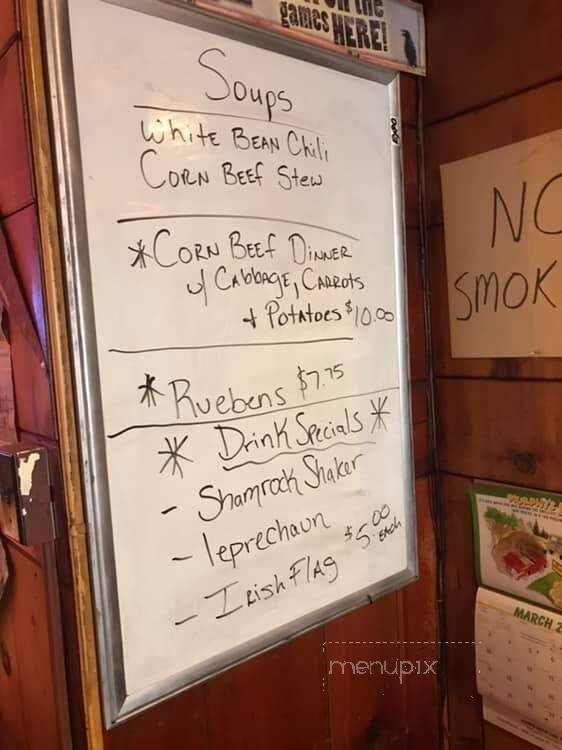 games HERE!
Soups
White BEAN Chili
CORN BEEf Stew
*CORN BEEf DINNER
w/ CABBAGE, CARROTS
+ PotAtoes $10.00
* Ruebens $7.75
* Drink Specials *
- Shamrock Shaker
- leprechaun
- IRish FlAg
$5.00 EACH
NO
SMOK
MARCH 2
menupix